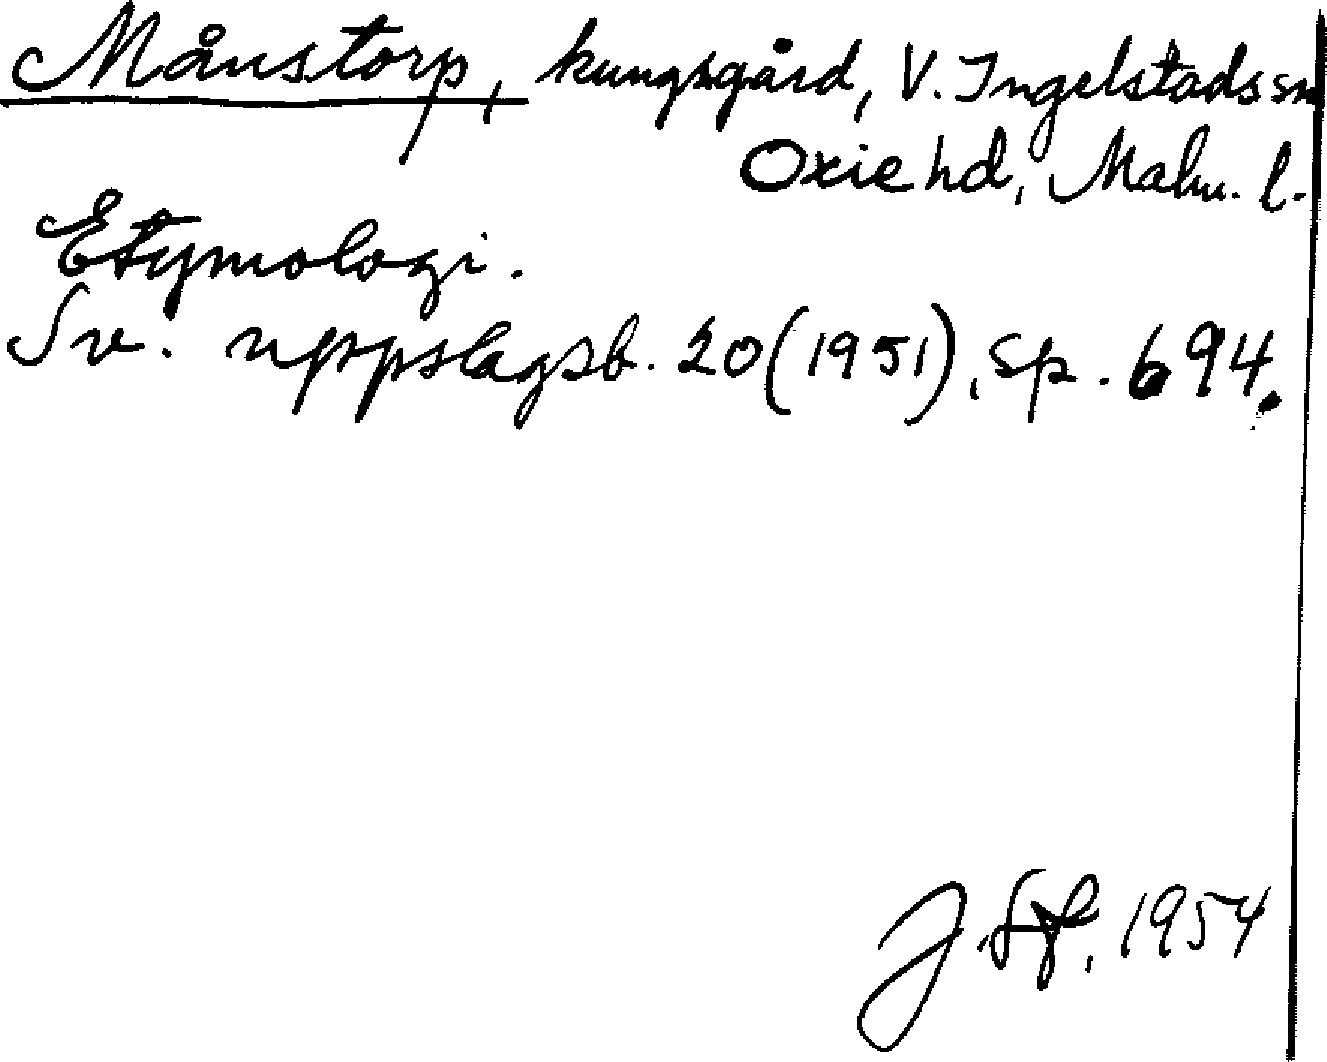 Månstorp, kungsgård, V. Ingelstads sn
Oxie hd, Malm. l.
Etymologi.
Sv. uppslagsb. 20 (1951), sp. 694.
J 1954